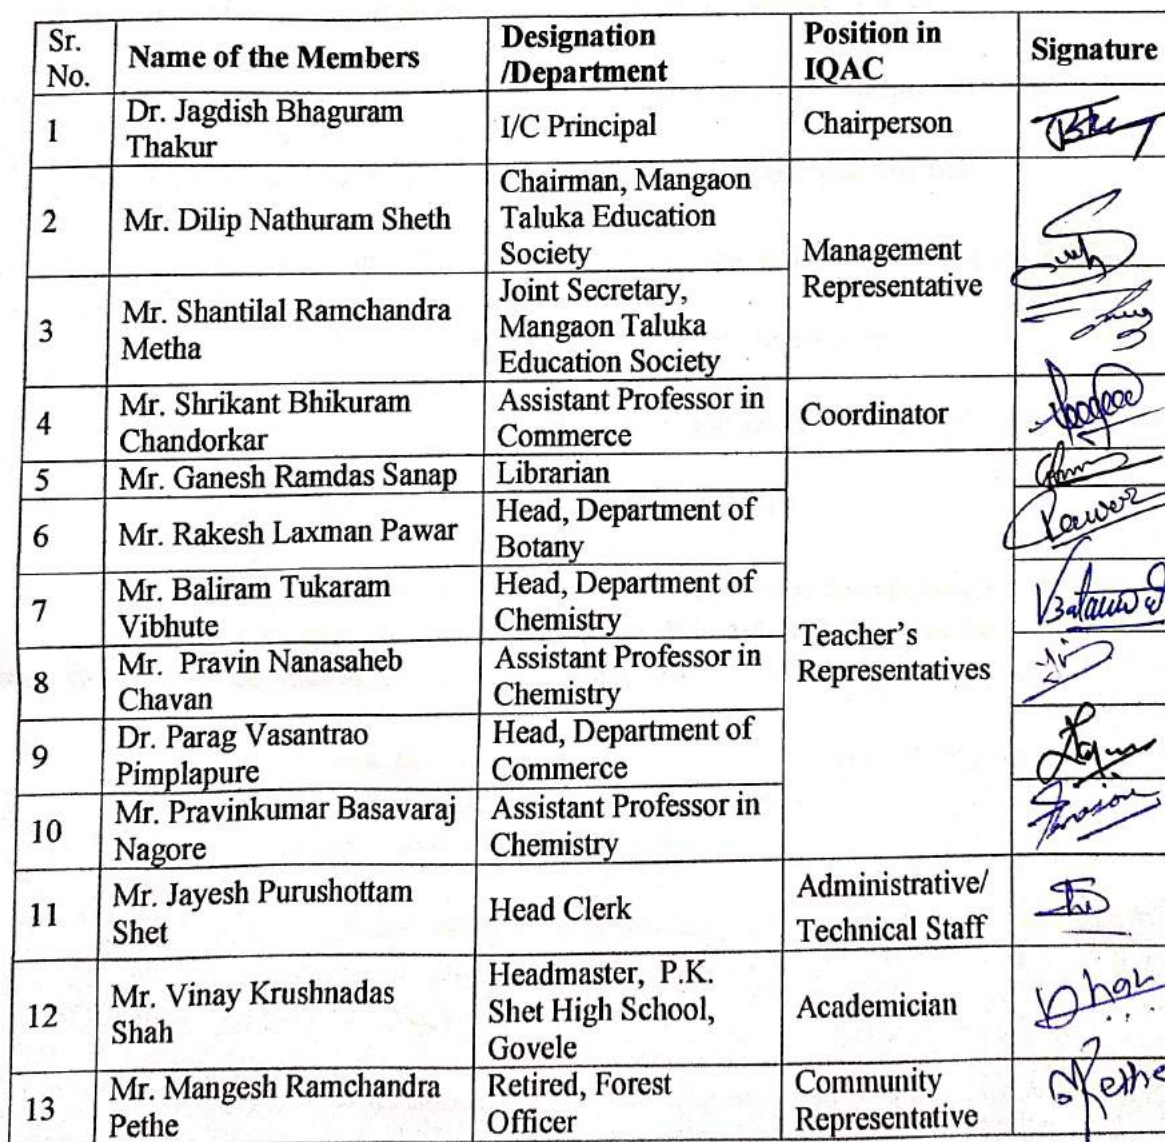 Sr. No.
Name of the Members
Designation /Department
Position in IQAC
Signature
1
Dr. Jagdish Bhaguram
Thakur
I/C Principal
Chairperson
2
Mr. Dilip Nathuram Sheth
Chairman, Mangaon
Taluka Education
Society
Management
Representative
3
Mr. Shantilal Ramchandra
Metha
Joint Secretary,
Mangaon Taluka
Education Society
4
Mr. Shrikant Bhikuram
Chandorkar
Assistant Professor in
Commerce
Coordinator
5
Mr. Ganesh Ramdas Sanap
Librarian
6
Mr. Rakesh Laxman Pawar
Head, Department of
Botany
7
Mr. Baliram Tukaram
Vibhute
Head, Department of
Chemistry
Teacher's
Representatives
8
Mr. Pravin Nanasaheb
Chavan
Assistant Professor in
Chemistry
9
Dr. Parag Vasantrao
Pimplapure
Head, Department of
Commerce
10
Mr. Pravinkumar Basavaraj
Nagore
Assistant Professor in
Chemistry
11
Mr. Jayesh Purushottam
Shet
Head Clerk
Administrative/
Technical Staff
12
Mr. Vinay Krushnadas
Shah
Headmaster, P.K.
Shet High School,
Govele
Academician
13
Mr. Mangesh Ramchandra
Pethe
Retired, Forest
Officer
Community
Representative